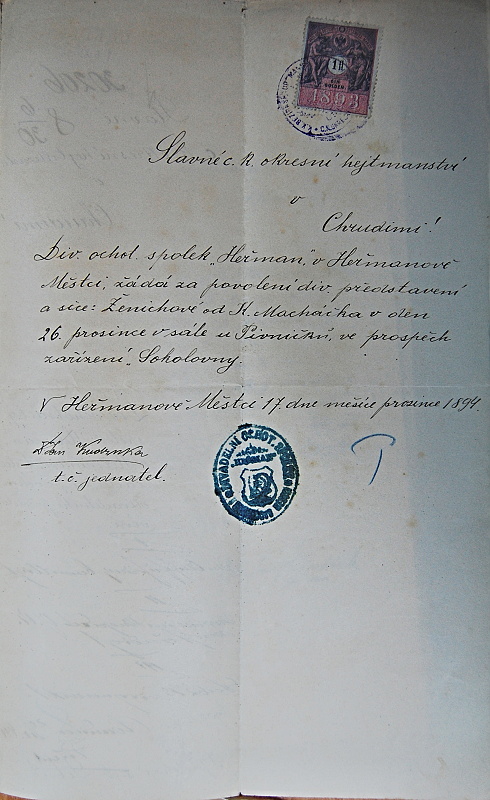 1 fl
1893
Slavné c. k. okresní hejtmanství
v
Chrudimi!
Div. ochot. spolek „Heřman", v Heřmanově
Městci, žádá za povolení div. představení
a sice: Ženichové od K. Macháčka v den
26. prosince v sále u Pivničků, ve prospěch
zařízení „Sokolovny.
V Heřmanově Městci 17. dne měsíce prosince 1894.
t. č. jednatel.
DIVADELNÍ OCHOT.